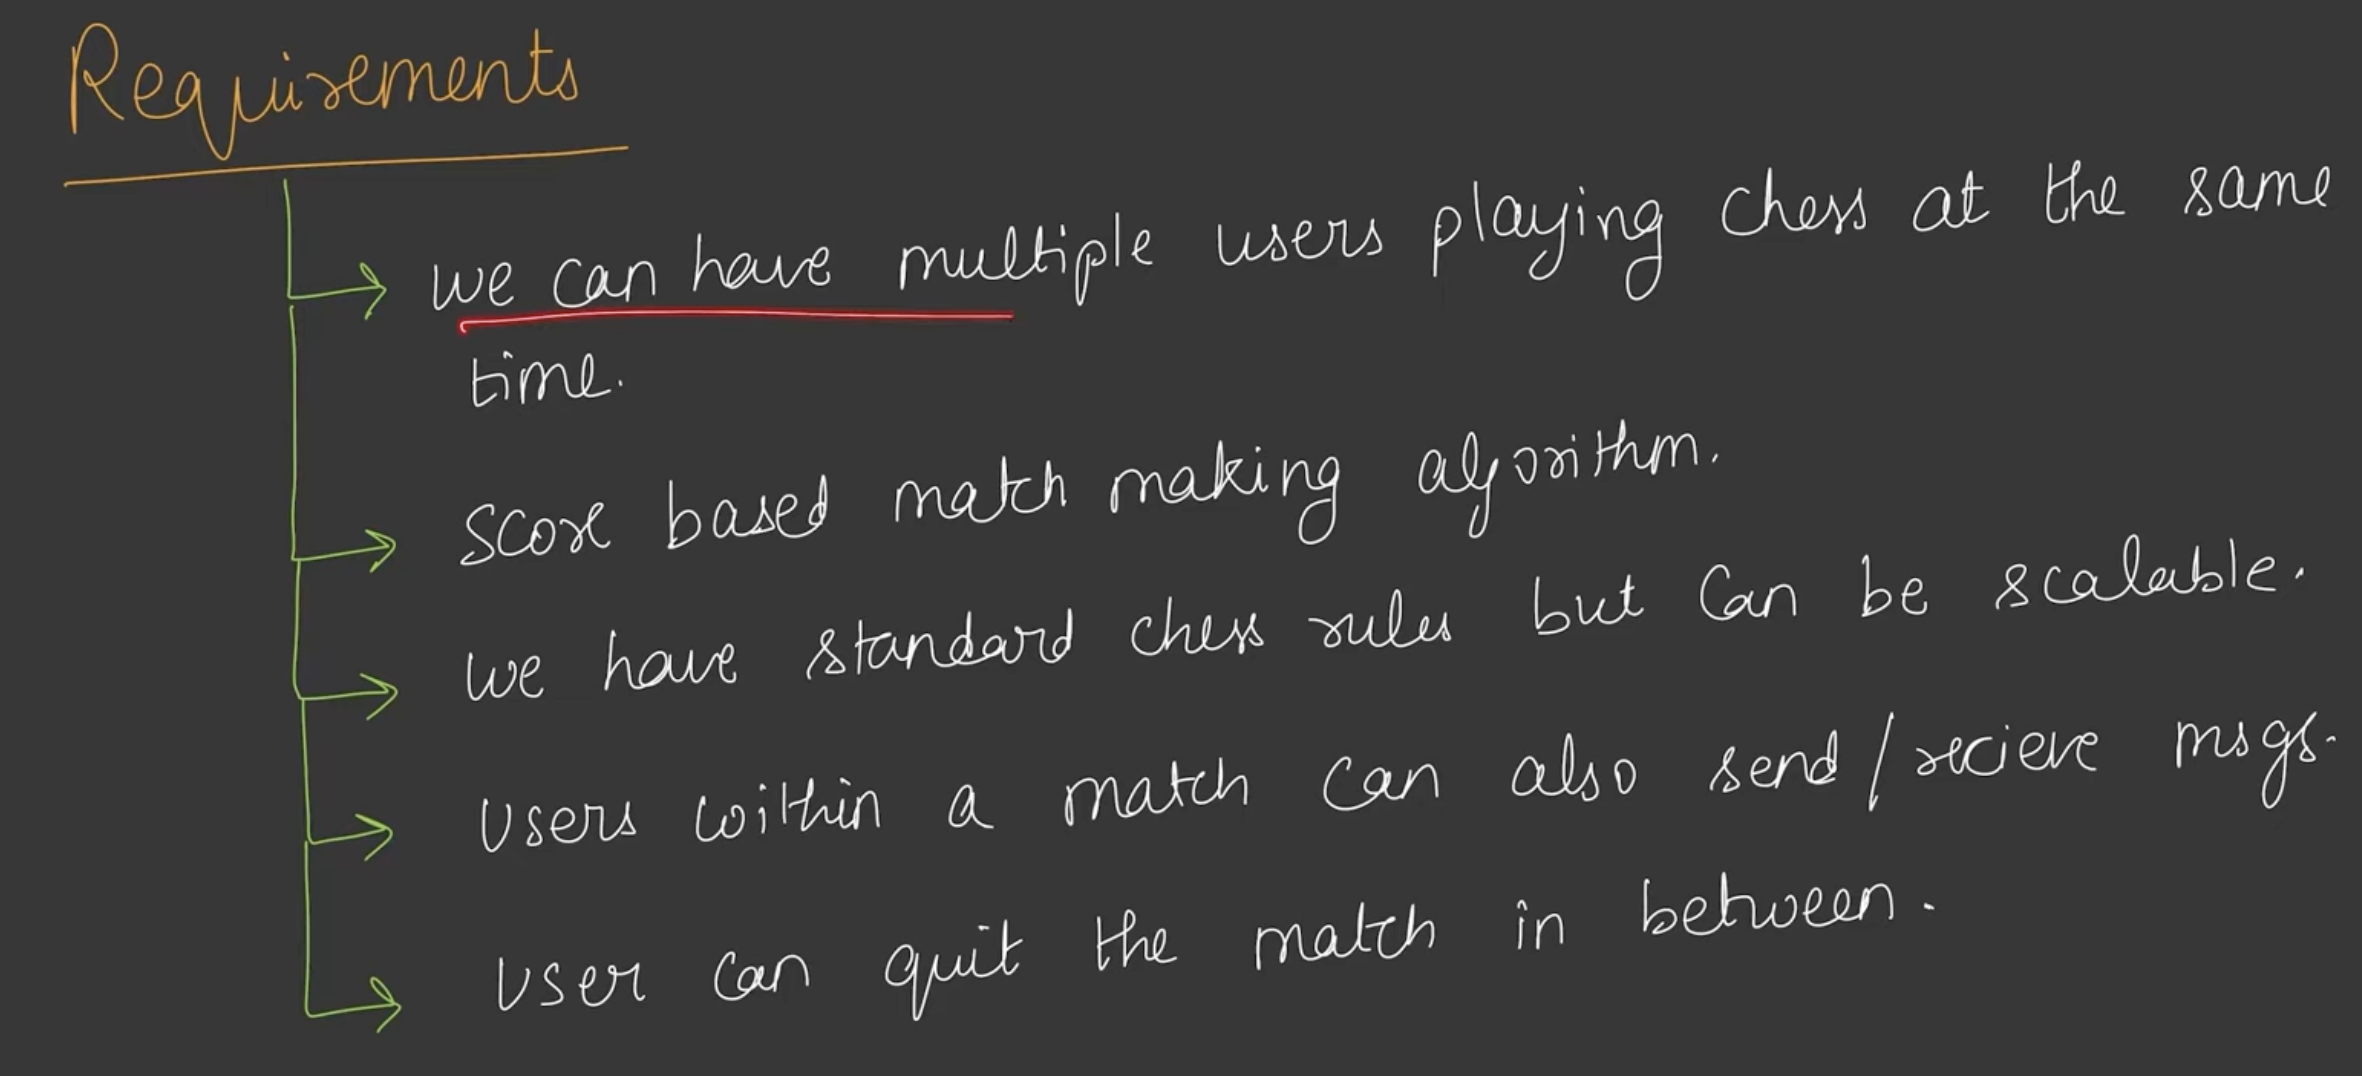 Requirements
we can have multiple users playing chess at the same
time.
score based match making algorithm.
we have standard chess rules but can be scalable.
Users within a match can also send/recieve msgs.
User can quit the match in between.